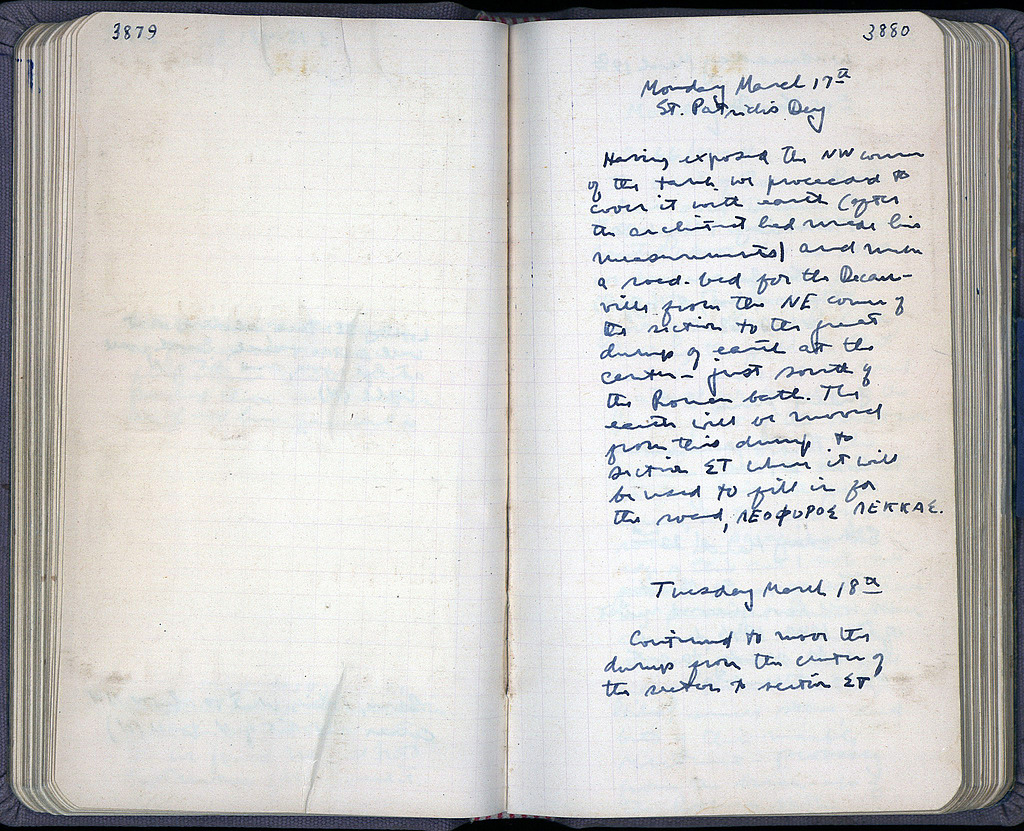 3879
3880
Monday March 17th
St. Patrick's Day
Having exposed the NW corner
of the tank we proceeded to
cover it with earth (after
the architect had made his
measurements) and make
a road-bed for the Decau-
ville from the NE corner of
the section to the great
dump of earth at the
center - just south of
the Roman bath. The
earth will be moved
from this dump to
section ΣΤ where it will
be used to fill in for
the road, ΛΕΟΦΟΡΟΣ ΛΕΚΚΑΣ.
Tuesday March 18th
Continued to move the
dump from the center of
the section to section ΣΤ